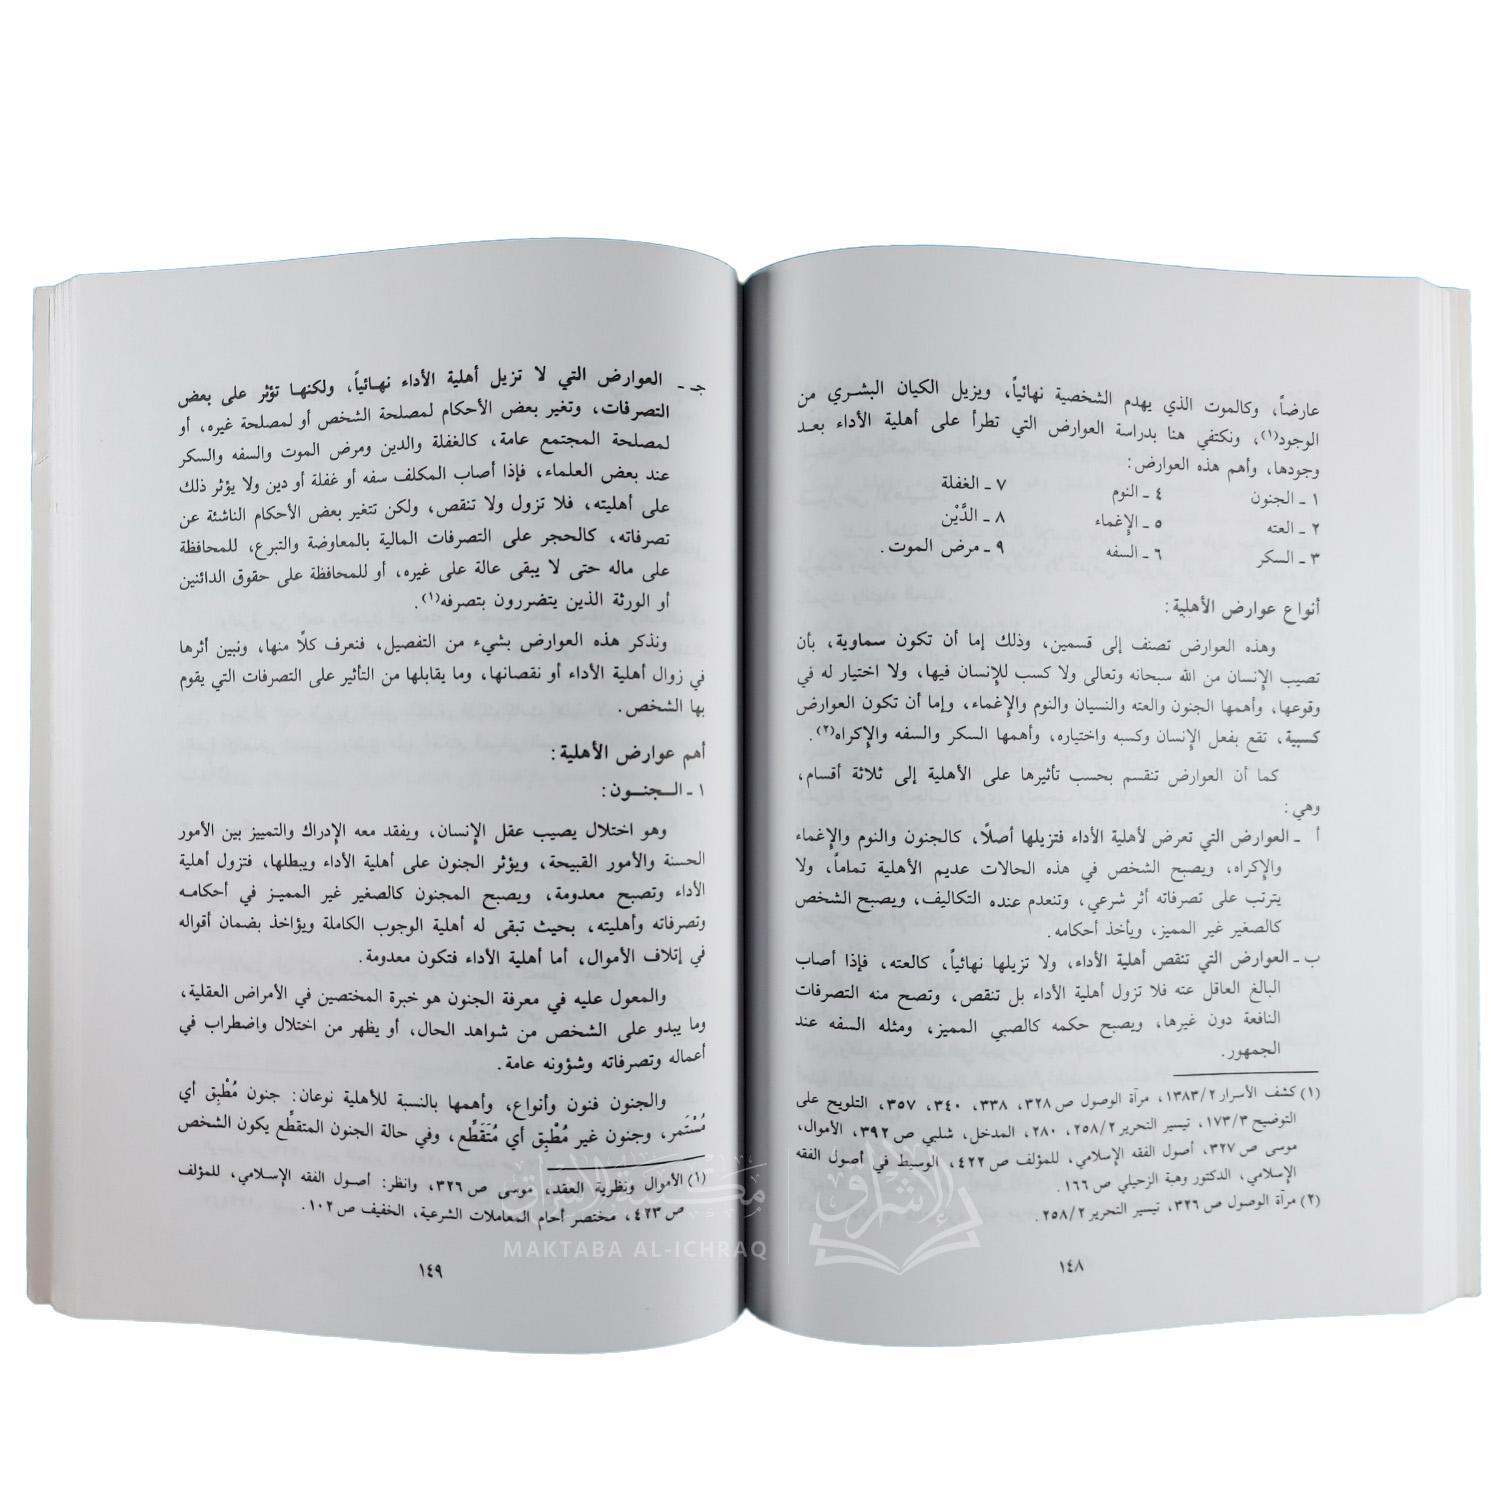 عارضاً، وكالموت الذي يهدم الشخصية نهائياً، ويزيل الكيان البشري من
الوجود(١)، ونكتفي هنا بدراسة العوارض التي تطرأ على أهلية الأداء بعد
وجودها، وأهم هذه العوارض:
١ ـ الجنون ٤ ـ النوم ٧ ـ الغفلة
٢ ـ العته ٥ ـ الإِغماء ٨ ـ الدَّيْن
٣ ـ السكر ٦ ـ السفه ٩ ـ مرض الموت.
أنواع عوارض الأهلية:
وهذه العوارض تصنف إلى قسمين، وذلك إما أن تكون سماوية، بأن
تصيب الإِنسان من الله سبحانه وتعالى ولا كسب للإِنسان فيها، ولا اختيار له في
وقوعها، وأهمها الجنون والعته والنسيان والنوم والإِغماء، وإما أن تكون العوارض
كسبية، تقع بفعل الإِنسان وكسبه واختياره، وأهمها السكر والسفه والإِكراه(٢).
كما أن العوارض تنقسم بحسب تأثيرها على الأهلية إلى ثلاثة أقسام،
وهي:
أ ـ العوارض التي تعرض لأهلية الأداء فتزيلها أصلًا، كالجنون والنوم والإِغماء
والإِكراه، ويصبح الشخص في هذه الحالات عديم الأهلية تماماً، ولا
يترتب على تصرفاته أثر شرعي، وتنعدم عنده التكاليف، ويصبح الشخص
كالصغير غير المميز، ويأخذ أحكامه.
ب ـ العوارض التي تنقص أهلية الأداء، ولا تزيلها نهائياً، كالعته، فإذا أصاب
البالغ العاقل عته فلا تزول أهلية الأداء بل تنقص، وتصح منه التصرفات
النافعة دون غيرها، ويصبح حكمه كالصبي المميز، ومثله السفه عند
الجمهور.
(١) كشف الأسرار ١٣٨٣/٢، مرآة الوصول ص ٣٢٨، ٣٣٨، ٣٤٠، ٣٥٧، التلويح على
التوضيح ١٧٣/٣، تيسير التحرير ٢٥٨/٢، ٢٨٠، المدخل، شلبي ص ٣٩٢، الأموال،
موسى ص ٣٢٧، أصول الفقه الإِسلامي، للمؤلف ص ٤٢٢، الوسيط في أصول الفقه
الإِسلامي، الدكتور وهبة الزحيلي ص ١٦٦.
(٢) مرآة الوصول ص ٣٢٦، تيسير التحرير ٢٥٨/٢.
١٤٨
جـ ـ العوارض التي لا تزيل أهلية الأداء نهائياً، ولكنها تؤثر على بعض
التصرفات، وتغير بعض الأحكام لمصلحة الشخص أو لمصلحة غيره، أو
لمصلحة المجتمع عامة، كالغفلة والدين ومرض الموت والسفه والسكر
عند بعض العلماء، فإذا أصاب المكلف سفه أو غفلة أو دين ولا يؤثر ذلك
على أهليته، فلا تزول ولا تنقص، ولكن تتغير بعض الأحكام الناشئة عن
تصرفاته، كالحجر على التصرفات المالية بالمعاوضة والتبرع، للمحافظة
على ماله حتى لا يبقى عالة على غيره، أو للمحافظة على حقوق الدائنين
أو الورثة الذين يتضررون بتصرفه(١).
ونذكر هذه العوارض بشيء من التفصيل، فنعرف كلًا منها، ونبين أثرها
في زوال أهلية الأداء أو نقصانها، وما يقابلها من التأثير على التصرفات التي يقوم
بها الشخص.
أهم عوارض الأهلية:
١ ـ الـجنـون:
وهو اختلال يصيب عقل الإِنسان، ويفقد معه الإِدراك والتمييز بين الأمور
الحسنة والأمور القبيحة، ويؤثر الجنون على أهلية الأداء ويبطلها، فتزول أهلية
الأداء وتصبح معدومة، ويصبح المجنون كالصغير غير المميز في أحكامه
وتصرفاته وأهليته، بحيث تبقى له أهلية الوجوب الكاملة ويؤاخذ بضمان أقواله
في إتلاف الأموال، أما أهلية الأداء فتكون معدومة.
والمعول عليه في معرفة الجنون هو خبرة المختصين في الأمراض العقلية،
وما يبدو على الشخص من شواهد الحال، أو يظهر من اختلال واضطراب في
أعماله وتصرفاته وشؤونه عامة.
والجنون فنون وأنواع، وأهمها بالنسبة للأهلية نوعان: جنون مُطْبِق أي
مُسْتَمر، وجنون غير مُطْبِق أي مُتَقَطِّع، وفي حالة الجنون المتقطِّع يكون الشخص
(١) الأموال ونظرية العقد، موسى ص ٣٢٦، وانظر: أصول الفقه الإِسلامي، للمؤلف
ص ٤٢٣، مختصر أحام المعاملات الشرعية، الخفيف ص ١٠٢.
١٤٩
مكتبة الإشراق
MAKTABA AL-ICHRAQ
الإشراق